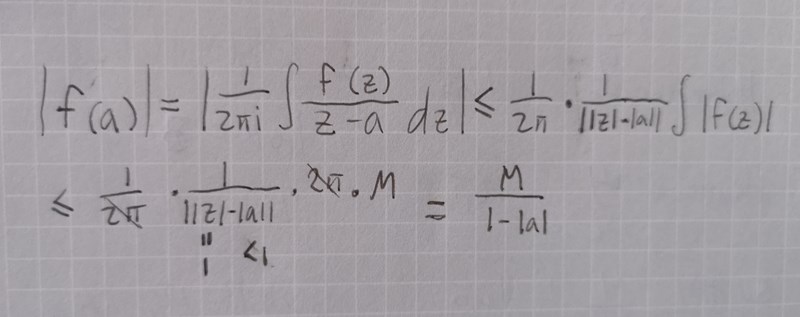 |f(a)| = |1/2πi ∫ f(z)/z-a dz| ≤ 1/2π · 1/||z|-|a|| ∫ |f(z)|
≤ 1/2π · 1/||z|-|a|| · 2π · M = M/1-|a|
" <1
1